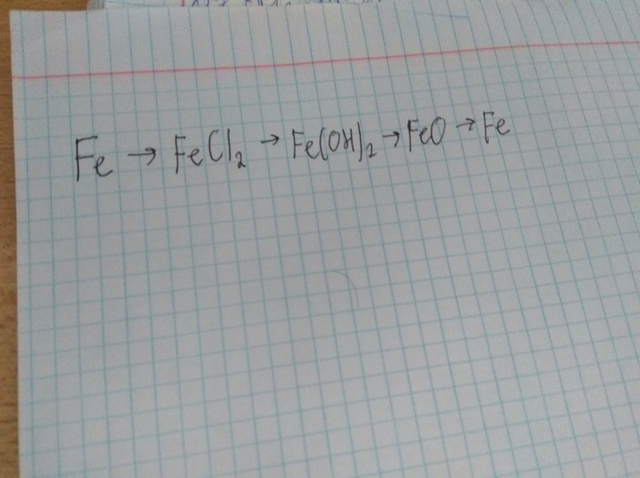 Fe → FeCl₂ → Fe(OH)₂ → FeO → Fe